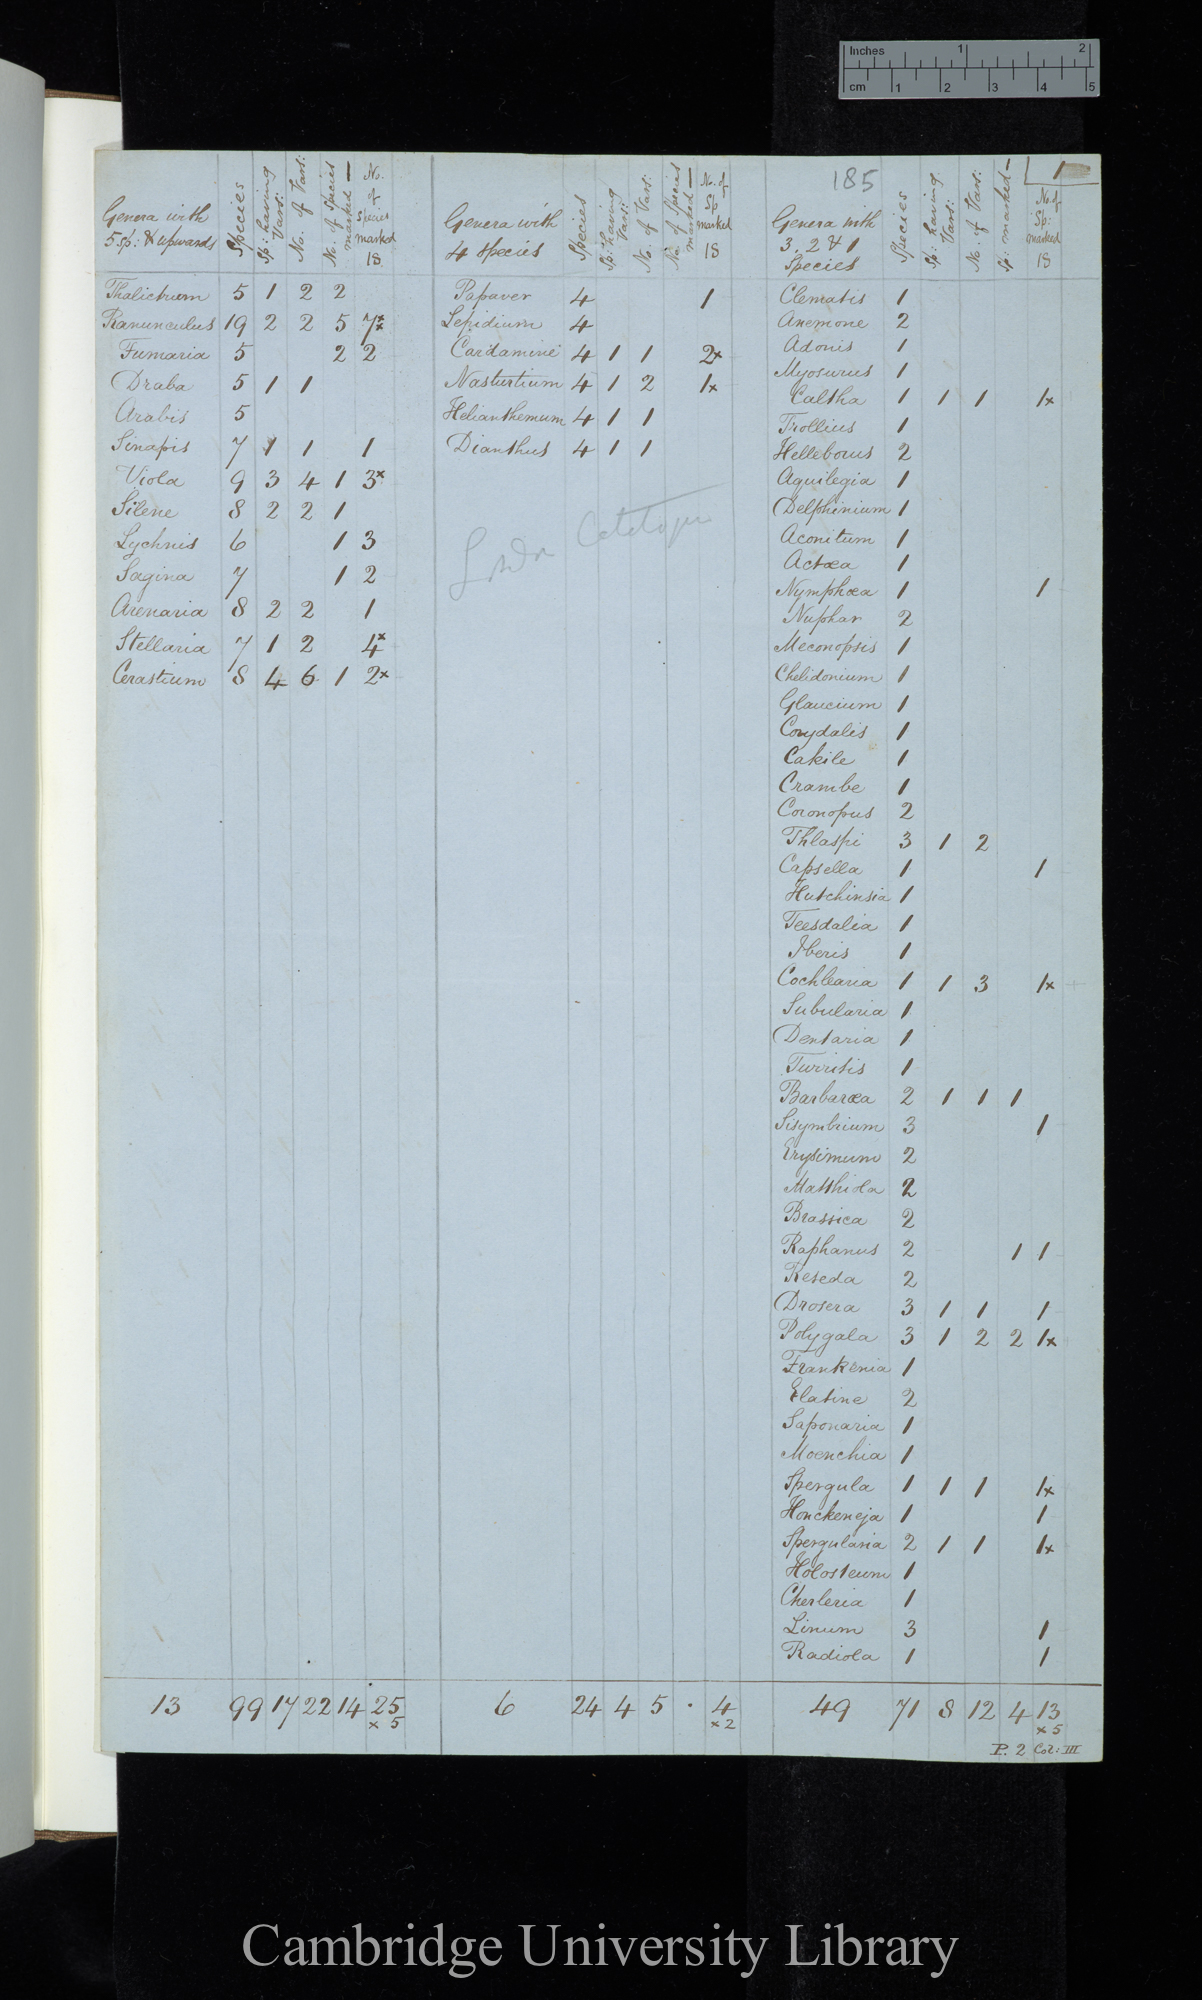 Inches 1 2
cm 1 2 3 4 5
185
1
Genera with 5 sp: & upwards | Species | Sp: having Vars: | No. of Vars: | No. of Species marked — | No. of Species marked 18
Thalictrum 5 1 2 2
Ranunculus 19 2 2 5 7xx
Fumaria 5 2 2
Draba 5 1 1
Arabis 5
Sinapis 7 1 1 1
Viola 9 3 4 1 3x
Silene 8 2 2 1
Lychnis 6 1 3
Sagina 7 1 2
Arenaria 8 2 2 1
Stellaria 7 1 2 4x
Cerastium 8 4 6 1 2x
13 99 17 22 14 25
x 5
Genera with 4 species | Species | Sp: having Vars: | No. of Vars: | No. of Species marked — | No. of Sp: marked 18
Papaver 4 1
Lepidium 4
Cardamine 4 1 1 2x
Nasturtium 4 1 2 1x
Helianthemum 4 1 1
Dianthus 4 1 1
London Catalogue
6 24 4 5 · 4
x 2
Genera with 3. 2 & 1 Species | Species | Sp: having Vars: | No. of Vars: | Sp: marked — | No. of Sp: marked 18
Clematis 1
Anemone 2
Adonis 1
Myosurus 1
Caltha 1 1 1 1x
Trollius 1
Helleborus 2
Aquilegia 1
Delphinium 1
Aconitum 1
Actæa 1
Nymphœa 1 1
Nuphar 2
Meconopsis 1
Chelidonium 1
Glaucium 1
Corydalis 1
Cakile 1
Crambe 1
Coronopus 2
Thlaspi 3 1 2
Capsella 1 1
Hutchinsia 1
Teesdalia 1
Iberis 1
Cochlearia 1 1 3 1x
Subularia 1
Dentaria 1
Turritis 1
Barbaræa 2 1 1 1
Sisymbrium 3 1
Erysimum 2
Matthiola 2
Brassica 2
Raphanus 2 1 1
Reseda 2
Drosera 3 1 1 1
Polygala 3 1 2 2 1x
Frankenia 1
Elatine 2
Saponaria 1
Moenchia 1
Spergula 1 1 1 1x
Honckeneja 1 1
Spergularia 2 1 1 1x
Holosteum 1
Cherleria 1
Linum 3 1
Radiola 1 1
49 71 8 12 4 13
x 5
P. 2 Col: III
Cambridge University Library